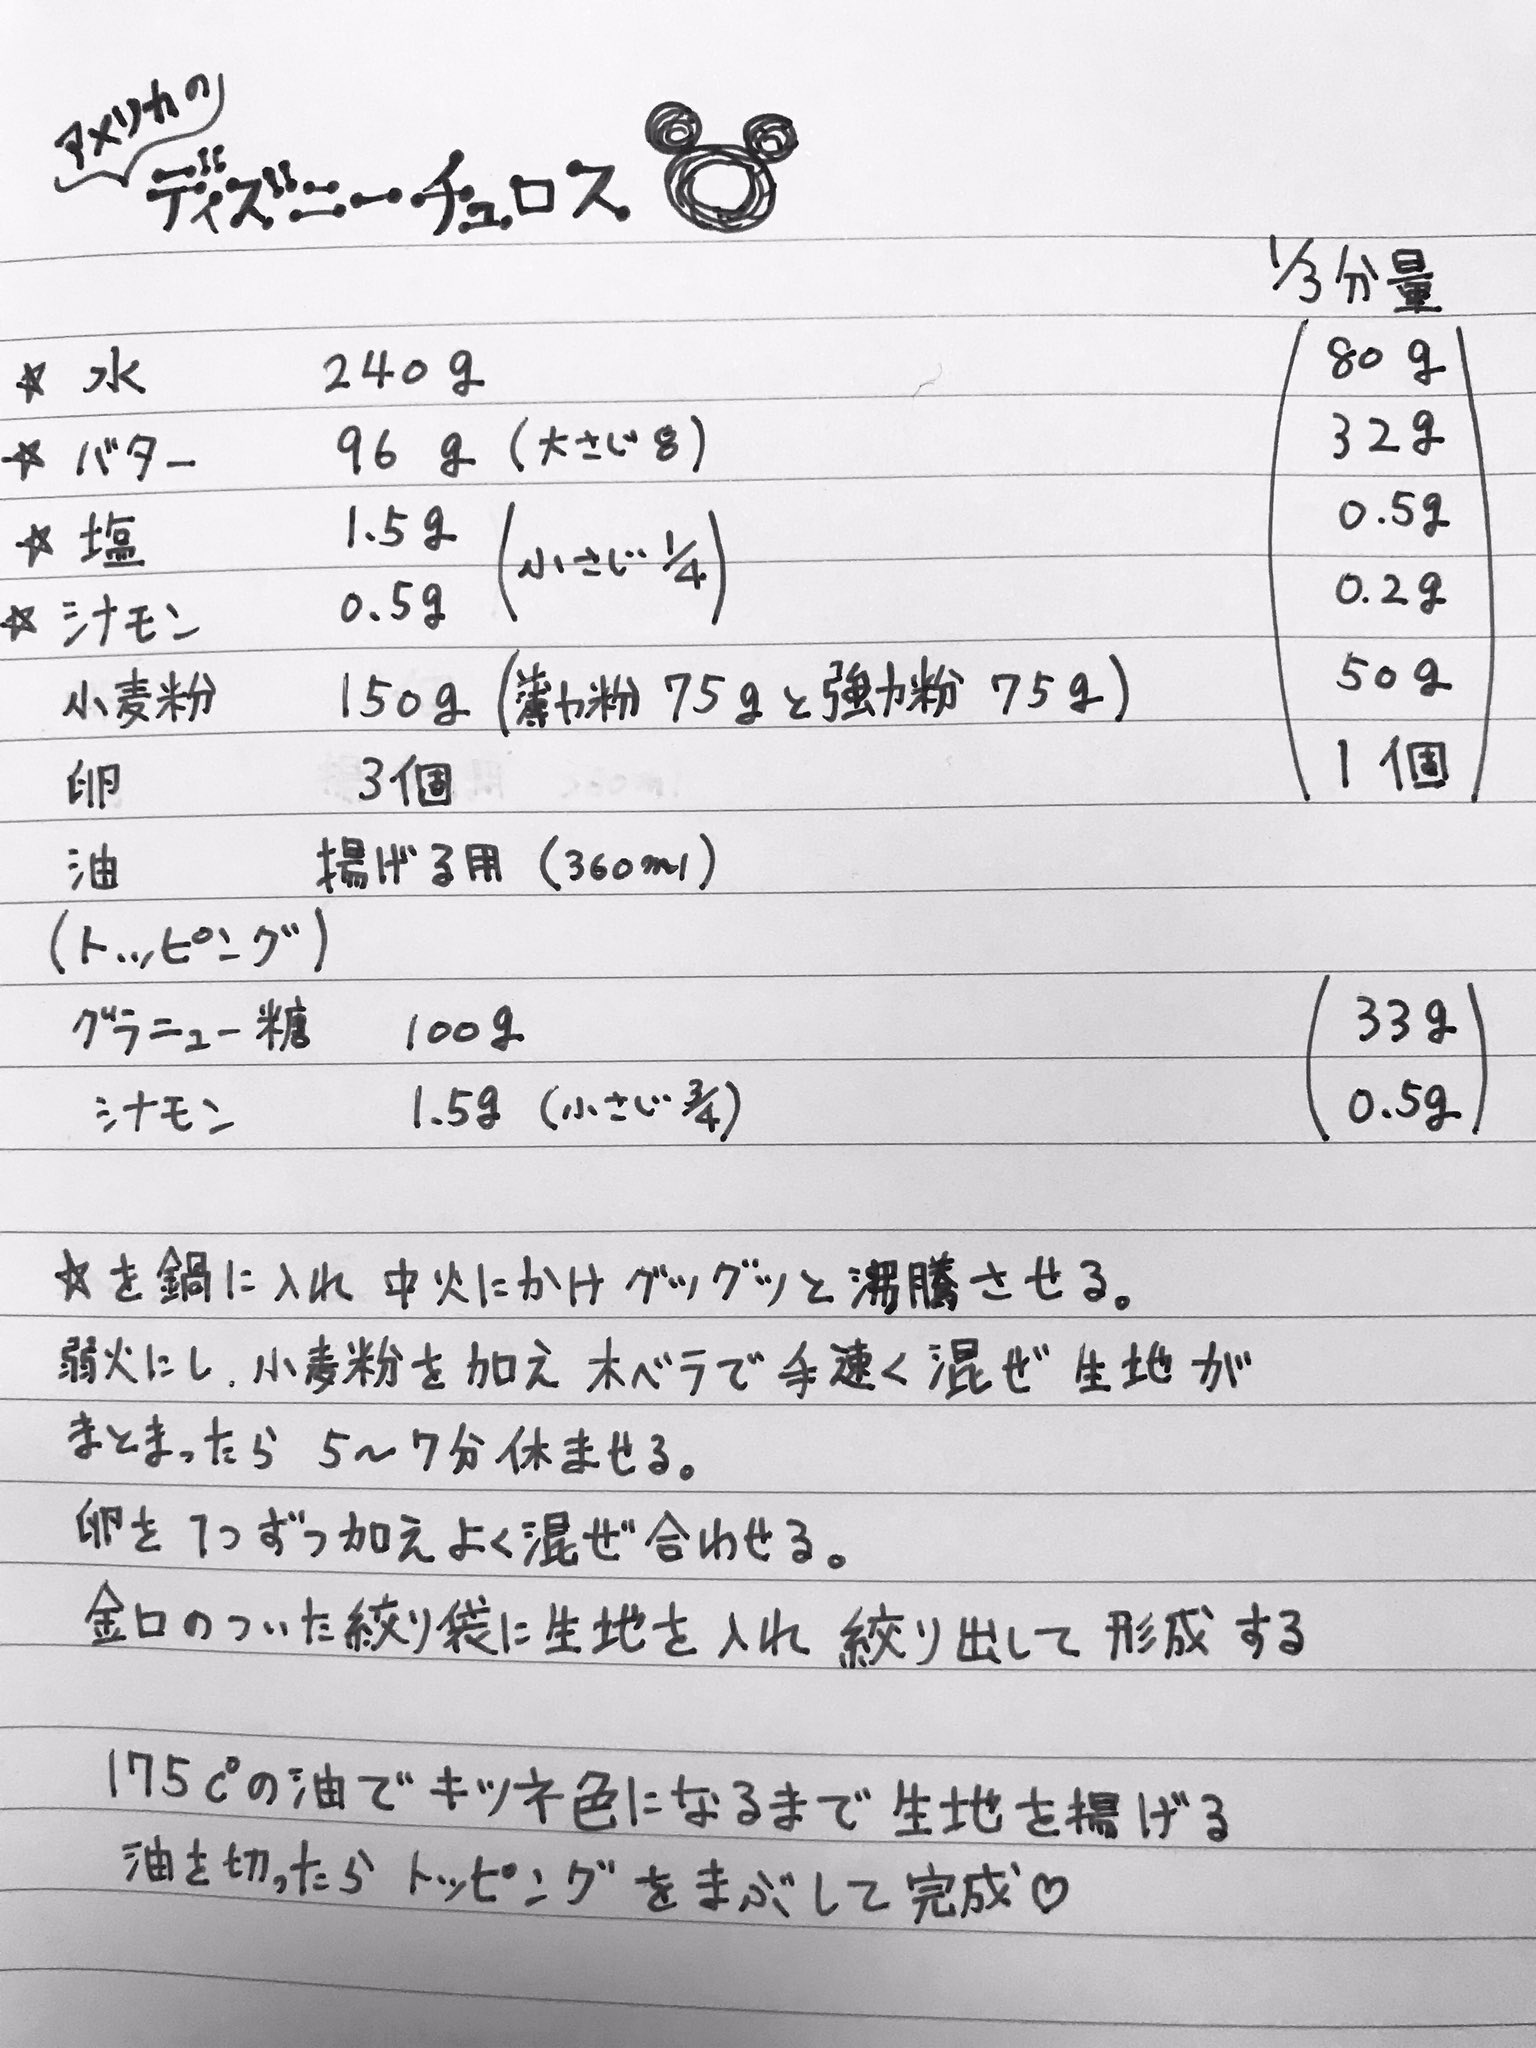 アメリカの
ディズニーチュロス
1/3分量
☆ 水 240g 80g
☆ バター 96g (大さじ8) 32g
☆ 塩 1.5g (小さじ1/4) 0.5g
☆ シナモン 0.5g 0.2g
小麦粉 150g (薄力粉 75gと強力粉 75g) 50g
卵 3個 1個
油 揚げる用 (360ml)
(トッピング)
グラニュー糖 100g 33g
シナモン 1.5g (小さじ3/4) 0.5g
☆を鍋に入れ 中火にかけグツグツと沸騰させる。
弱火にし、小麦粉を加え 木ベラで手速く混ぜ 生地が
まとまったら 5〜7分休ませる。
卵を1つずつ加えよく混ぜ合わせる。
金口のついた絞り袋に生地を入れ 絞り出して 形成する
175C°の油でキツネ色になるまで生地を揚げる
油を切ったらトッピングをまぶして完成♡